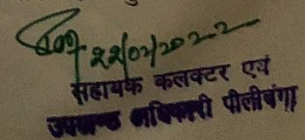 22/02/2022
सहायक कलक्टर एवं
उपखण्ड अधिकारी पीलीबंगा